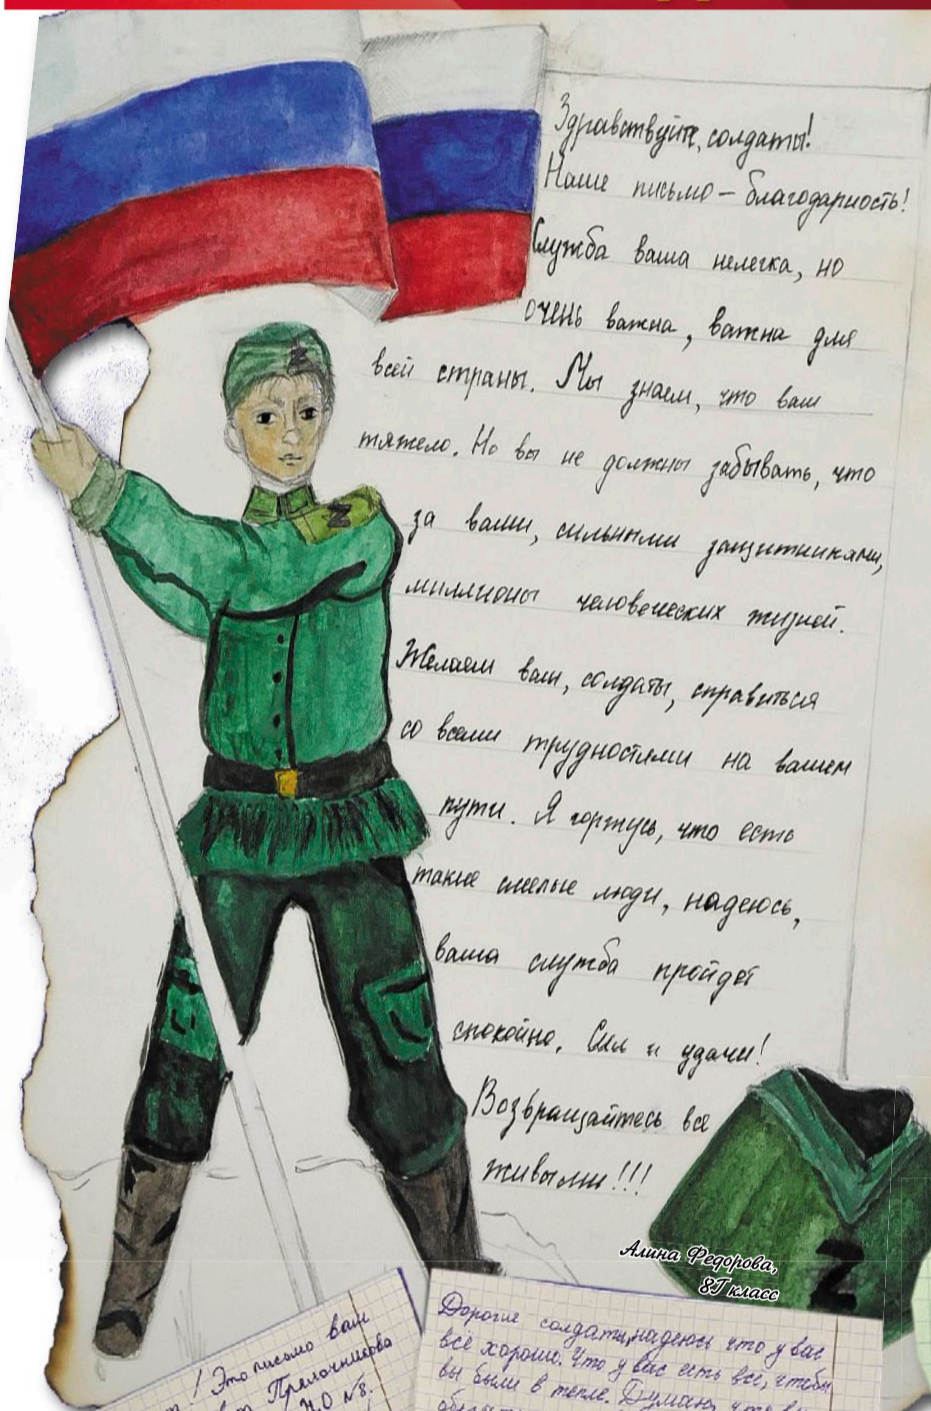 Здравствуйте, солдаты!
Наше письмо – благодарность!
Служба ваша нелегка, но
очень важна, важна для
всей страны. Мы знаем, что вам
тяжело. Но вы не должны забывать, что
за вами, сильными защитниками,
миллионы человеческих жизней.
Желаем вам, солдаты, справиться
со всеми трудностями на вашем
пути. Я горжусь, что есть
такие смелые люди, надеюсь,
ваша служба пройдет
спокойно. Сил и удачи!
Возвращайтесь все
живыми!!!
Z
Z
Z
Алина Федорова,
8Г класс
! Это письмо вам
№8.
Дорогие солдаты, надеюсь что у вас
всё хорошо. Что у вас есть всё, чтобы
вы были в тепле. Думаю, что вы